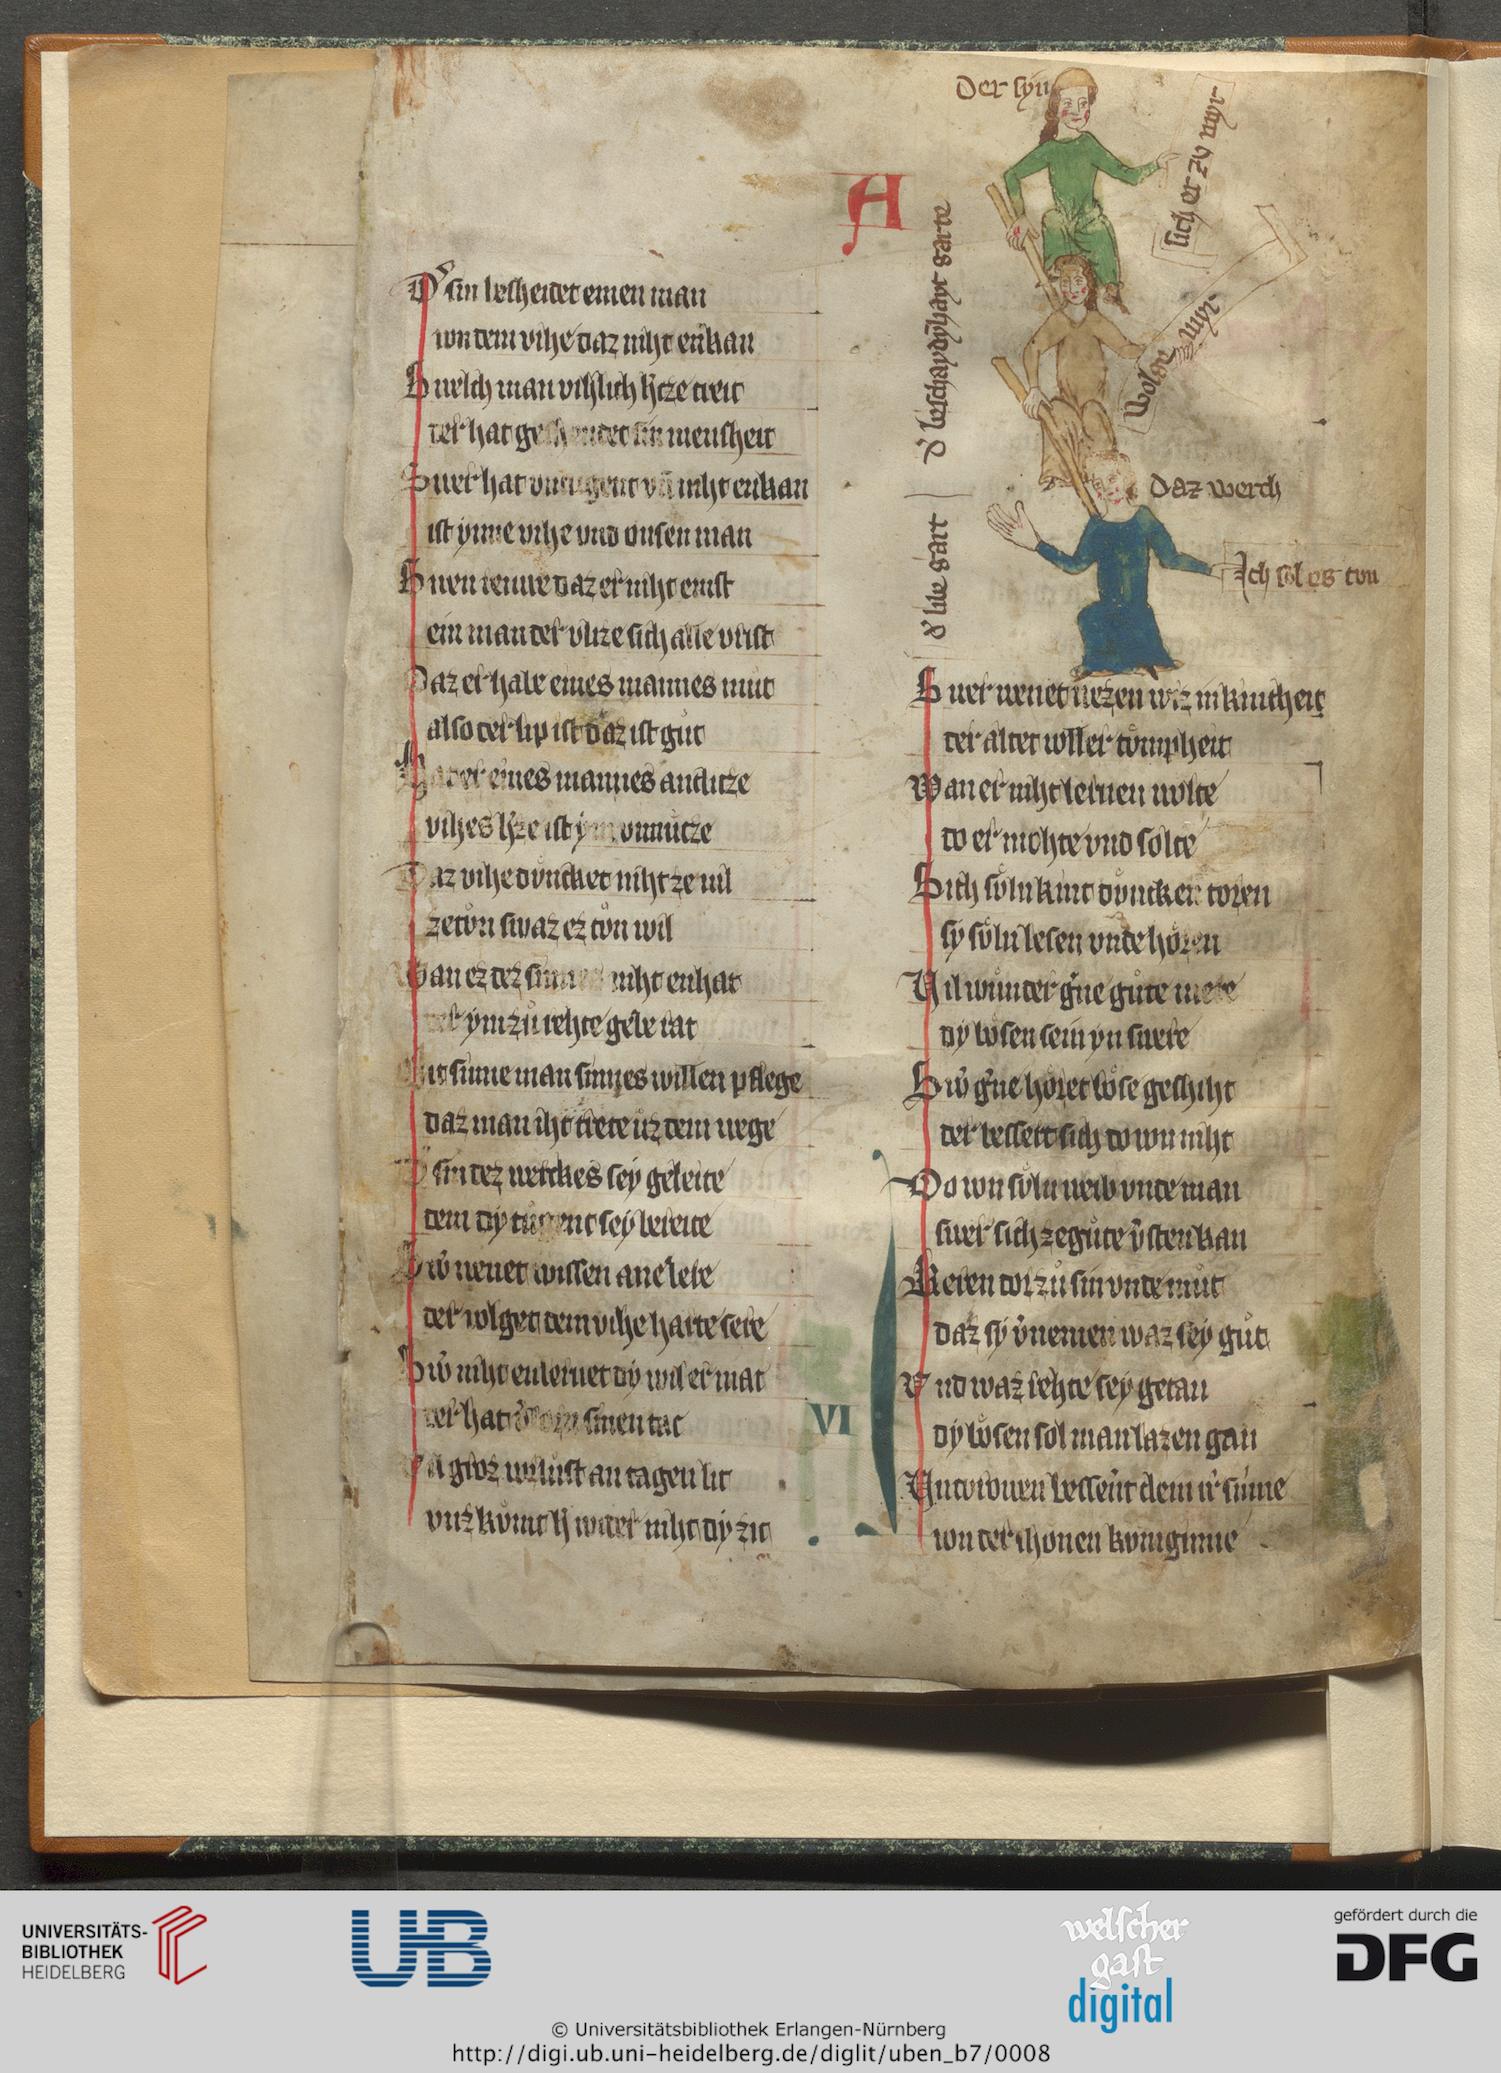 Der syn
A
sich er zv myr
d' beschaydynhayt garte
Volge myr
Daz werch
d' libe gart
Ich sol es ton
D' sin bescheidet einen man
von dem vihe daz niht enkan
Swelch man vihlich h'tze treit
der hat geschendet sin menscheit
Swer hat vntugent vn̄ niht enkan
ist ynne vihe vnd vusen man
Swen denne daz er niht enist
ein man der vlize sich alle vrist
Daz er habe eines mannes mut
also der lip ist daz ist gut
Hat er eines mannes anclutze
vihes h'ze ist ym vnnutze
Daz vihe duncket niht ze vil
ze tŏn swaz ez tŏn wil
Wan ez dez sinnes niht enhat
der ym zu rehte gebe rat
Mit sinne man sinnes willen pflege
daz man iht trete uz dem wege
D' sin dez werckes sey geleite
dem dy tugent sey bereite
Sw' wenet wissen ane lere
der volget dem vihe harte sere
Sw' niht enlernet dy wil er mac
der hat sinen tac
groz verlust an tagen lit
vnz kvmt h' wider niht dy zit
Swer wenet wezen wiz in kindheit
der altet voller tŏmpheit
Wan er niht lernen wolte
do er mohte vnd solte
Sich sŏln kint dŏncken toren
sy sŏln lesen vnde horen
Vil wunder g'ne gute mere
dy bŏsen sein yn swere
Sw' g'ne horet bŏse geschiht
der bessert sich do von niht
Do von sŏln weib vnde man
swer sich ze gute v'sten kan
Keren dor zu sin vnde mut
daz sy v'nemen waz sey gut
Vnd waz rehte sey getan
dy bŏsen sol man lazen gan
VI
Juncvrouen bessent dem ir sinne
von der schonen kvniginne
UNIVERSITÄTS-
BIBLIOTHEK
HEIDELBERG
UB
welscher
gast
digital
gefördert durch die
DFG
© Universitätsbibliothek Erlangen-Nürnberg
http://digi.ub.uni-heidelberg.de/diglit/uben_b7/0008